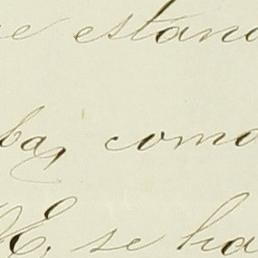 e estand
ba, como
E, se ha